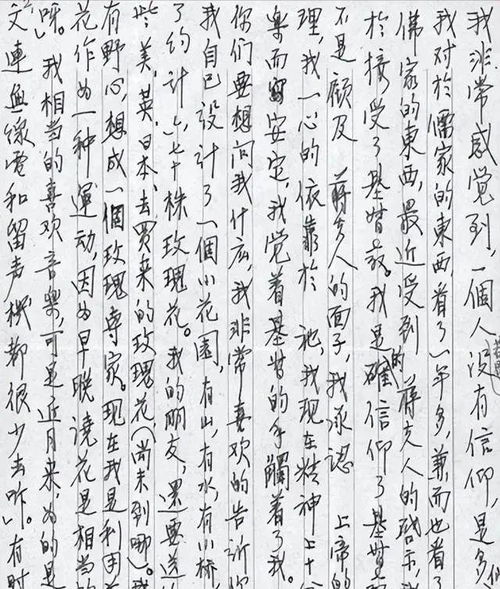 我非常感觉到,一個人没有信仰是多
我对于儒家的東西,看了一年多,兼而也看了
佛家的東西,最近受到蒋夫人的啓示,我
於接受了基督教。我是的確信仰了基督
不是顧及 蒋夫人的面子,我承認 上帝的
理,我一心的依靠於 祂,我现在精神上十分
樂而安定,我觉着基督的手觸着了我。
你们要想问我什么,我非常喜欢的告诉你
我自己設计了一個小花園,有山,有水,有小橋,
了约计六七十株玫瑰花。我的朋友,還要送
些美,英,日本,去買来的玫瑰花(尚未到哪)。我
有野心,想成一個玫瑰專家。现在我是利用
花作为一种運动,因为早晚澆花是相当的
呀。我相当的喜欢音樂,可是近月来,为的是
文"連無線電和留声機都很少去听。有时